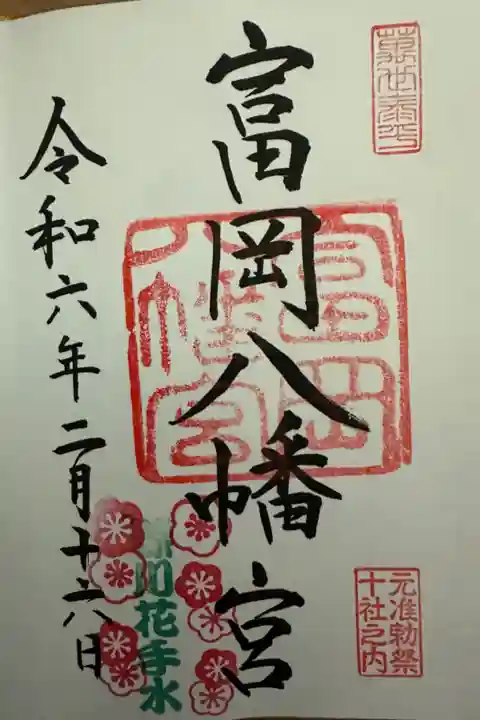 萬世泰平
元准勅祭
十社之内
富岡八幡宮
富岡
八幡宮
深川花手水
令和六年二月十六日